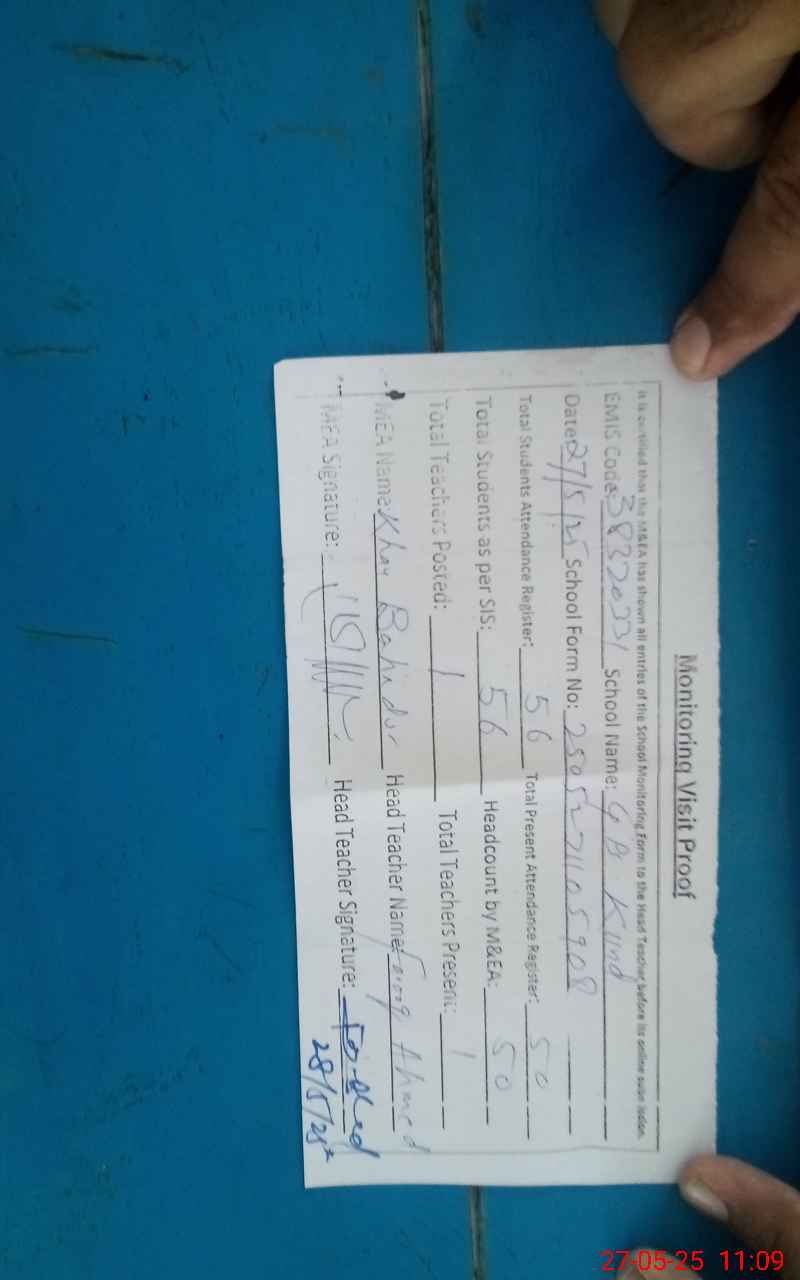 Monitoring Visit Proof
It is certified that the M&EA has shown all entries of the School Monitoring Form to the Head Teacher before its online submission.
EMIS Code: 38320331 School Name: G B Kund
Date: 27/5/25 School Form No: 2505271105908
Total Students Attendance Register: 56 Total Present Attendance Register: 50
Total Students as per SIS: 56 Headcount by M&EA: 50
Total Teachers Posted: 1 Total Teachers Present: 1
MEA Name: Khan Bahadur Head Teacher Name: Farooq Ahmed
MEA Signature: Head Teacher Signature:
28/5/25
27-05-25 11:09